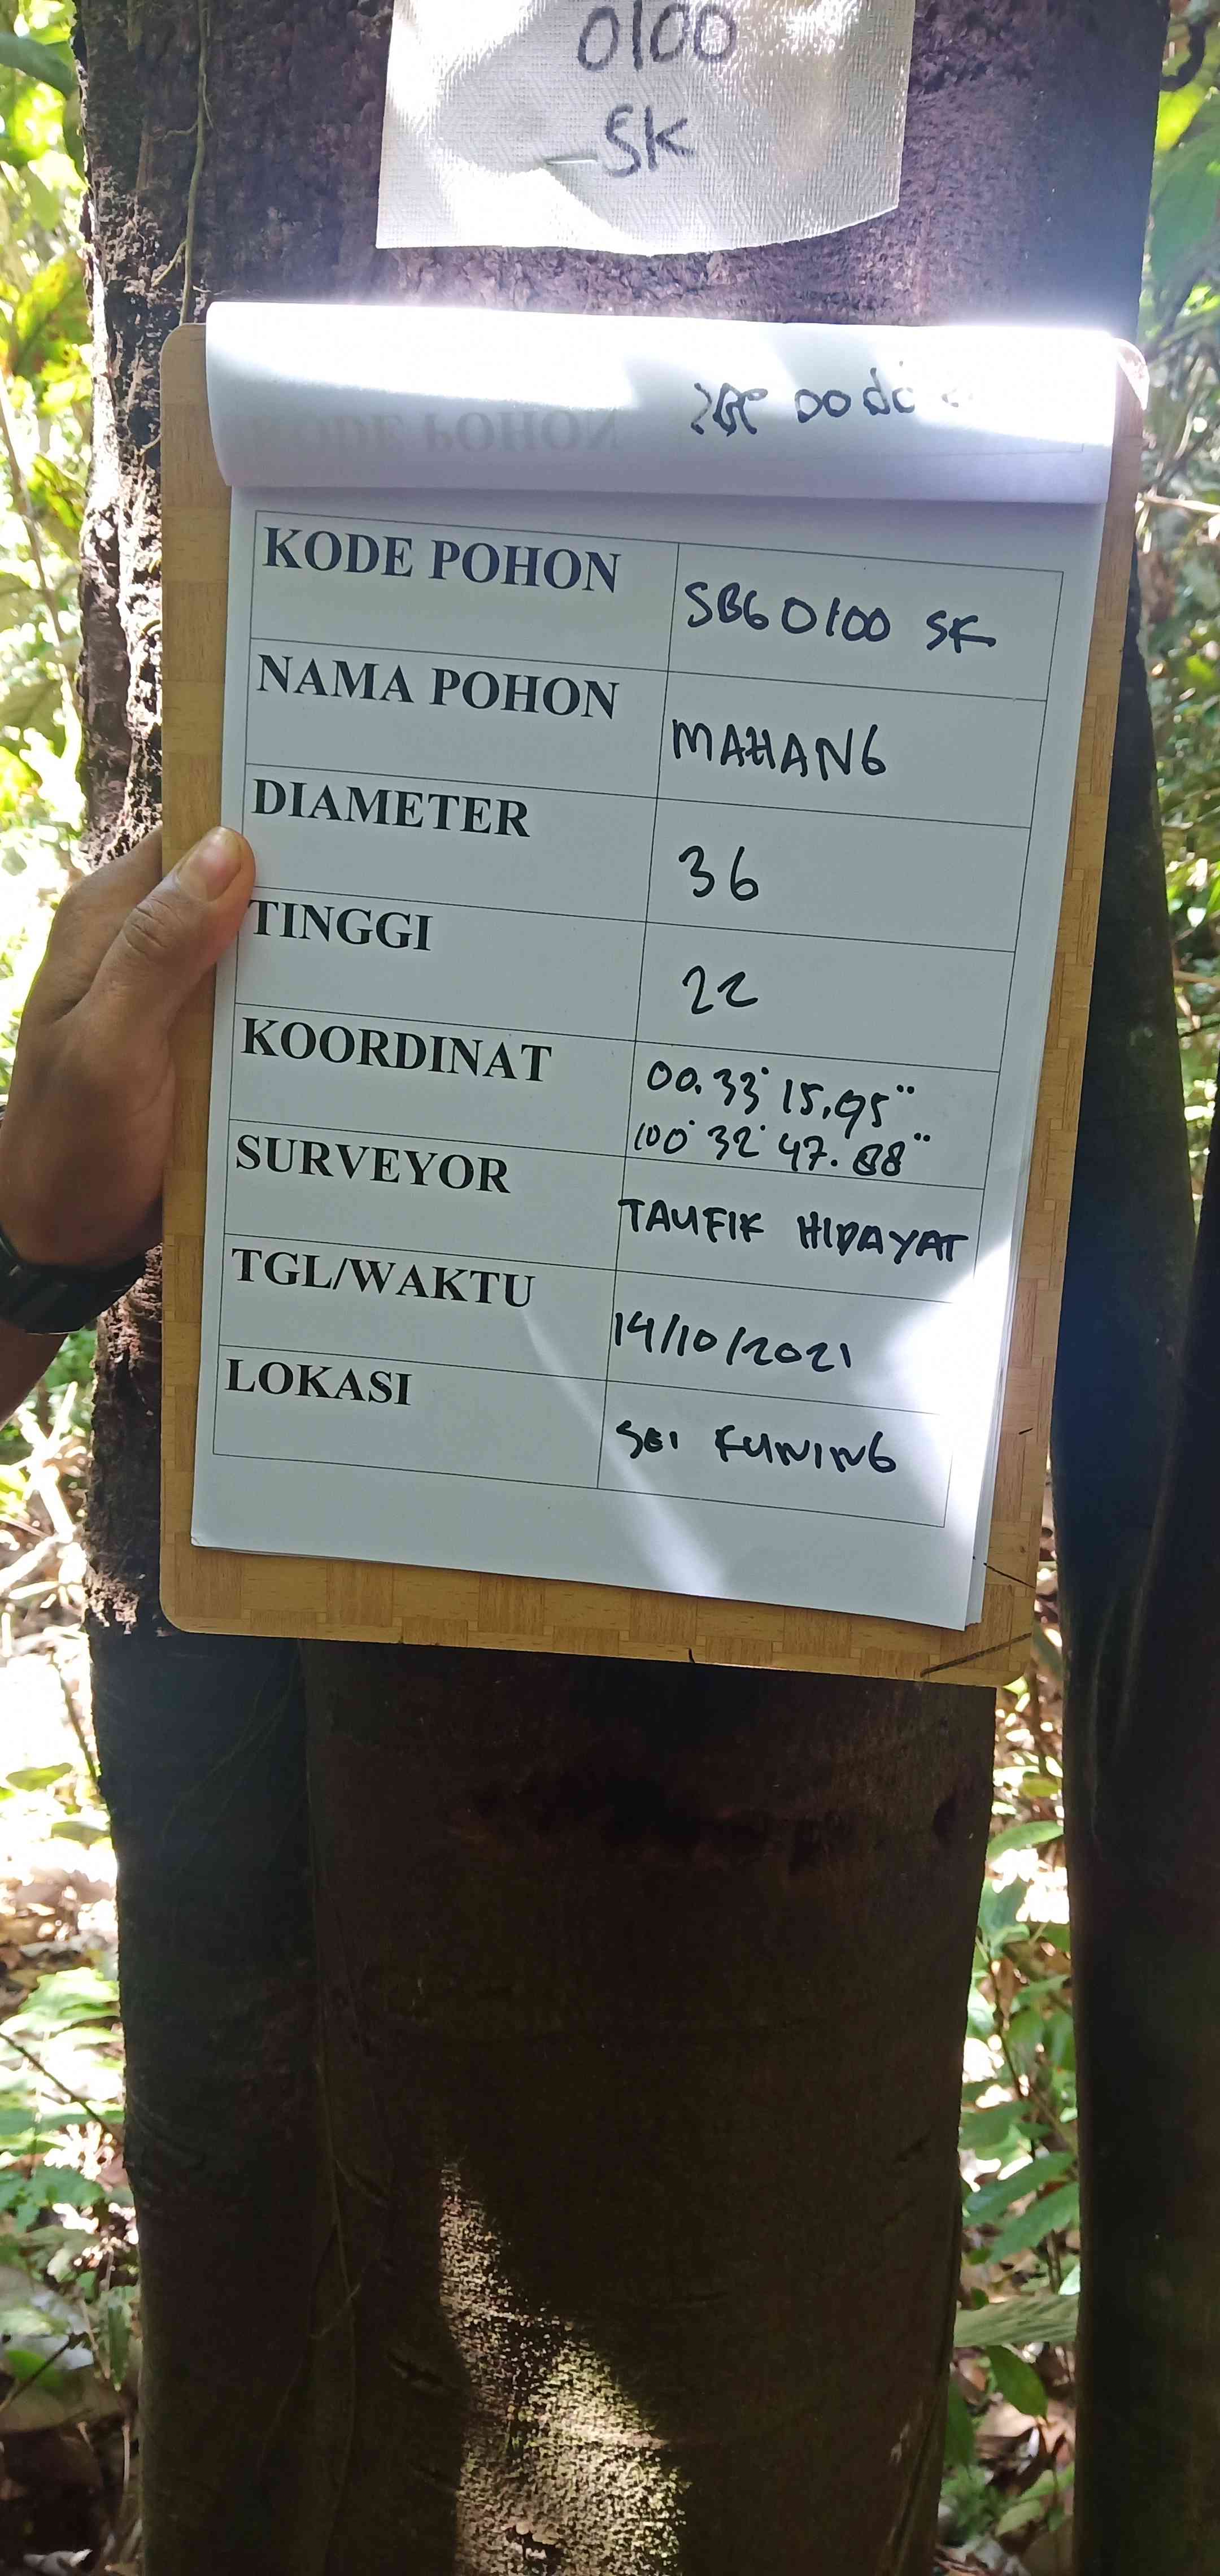 0100
SK
KODE POHON SBG 0100 SK
NAMA POHON MAHANG
DIAMETER 36
TINGGI 22
KOORDINAT 00.33' 15,95"
100° 32' 47.88"
SURVEYOR TAUFIK HIDAYAT
TGL/WAKTU 14/10/2021
LOKASI SEI KUNING